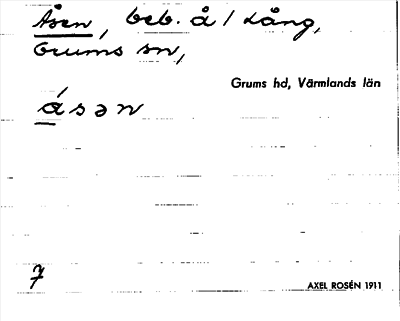 Åsen, beb. å / Lång,
Grums sn,
Grums hd, Värmlands län
ǻsən
7
AXEL ROSÉN 1911